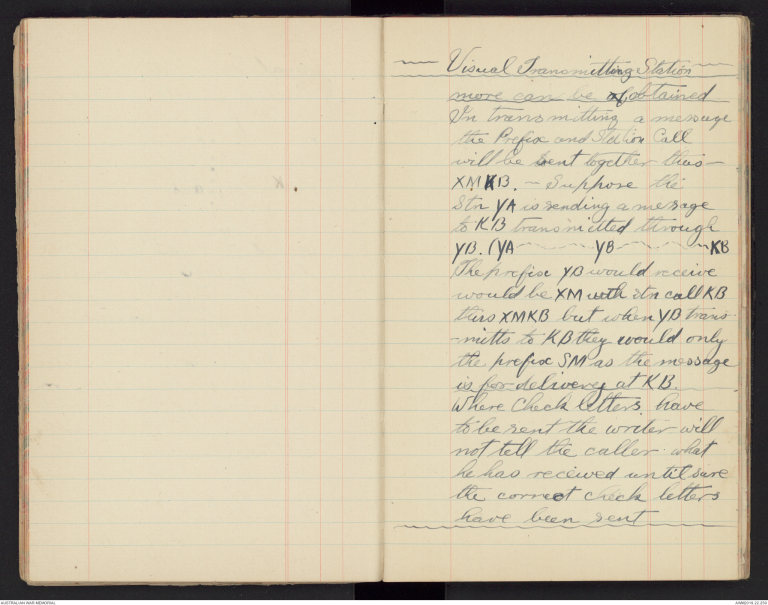 Visual Transmitting Station
more can be obtained
In transmitting a message
the Prefix and Station Call
will be sent together thus -
XMKB. - Suppose the
Stn YA is sending a message
to KB transmitted through
YB. (YA ~~~~~~ YB ~~~~~~ KB
The prefix YB would receive
would be XM with stn call KB
thus XMKB but when YB trans-
-mitts to KB they would only
the prefix SM as the message
is for delivery at KB.
Where Check letters have
to be sent the writer will
not tell the caller what
he has received until sure
the correct check letters
have been sent
AUSTRALIAN WAR MEMORIAL